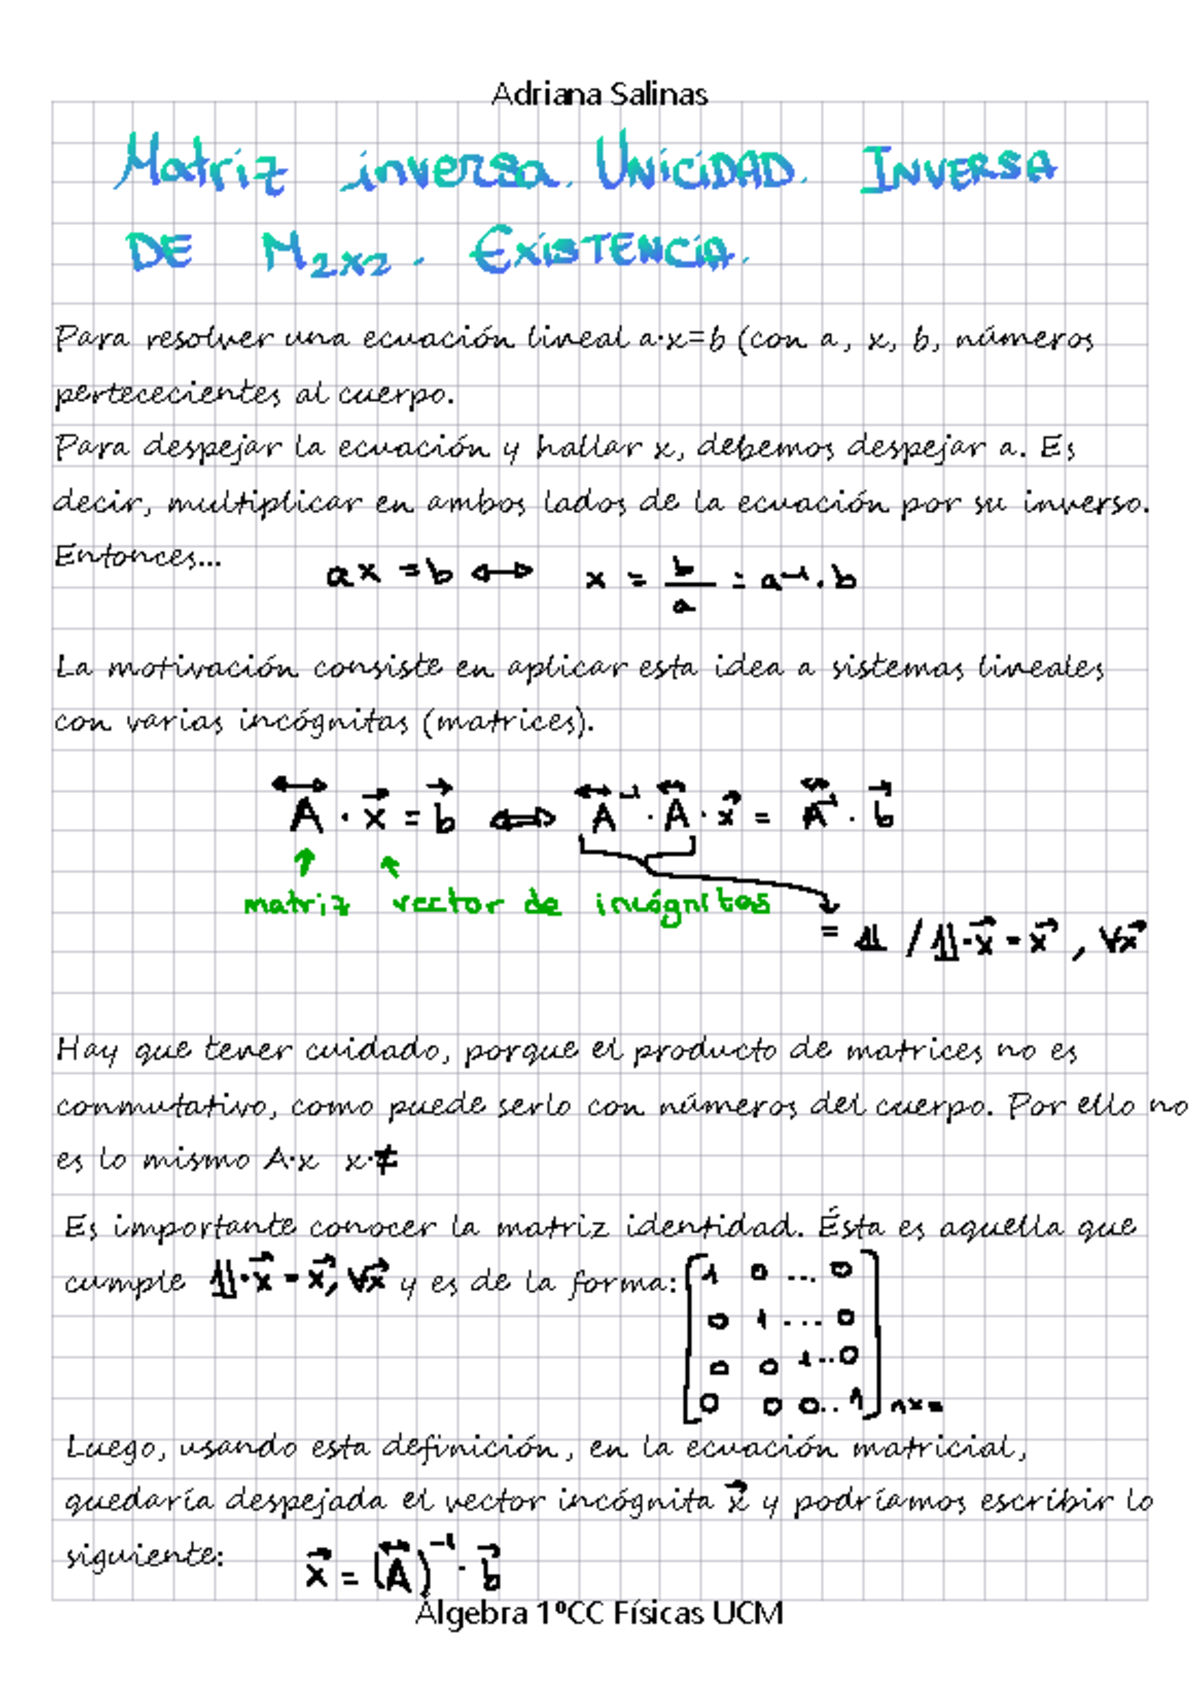 Adriana Salinas
Matriz inversa. UNICIDAD. INVERSA
DE M₂ₓ₂. EXISTENCIA.
Para resolver una ecuación lineal a·x=b (con a, x, b, números
pertececientes al cuerpo.
Para despejar la ecuación y hallar x, debemos despejar a. Es
decir, multiplicar en ambos lados de la ecuación por su inverso.
Entonces...
ax = b ⟷ x = b/a = a⁻¹·b
La motivación consiste en aplicar esta idea a sistemas lineales
con varias incógnitas (matrices).
A⃡ · x⃗ = b⃗ ⟺ A⃡⁻¹ · A⃡ · x⃗ = A⃡⁻¹ · b⃗
↑ ↑
matriz vector de incógnitas
= 𝟙 / 𝟙·x⃗ = x⃗, ∀x⃗
Hay que tener cuidado, porque el producto de matrices no es
conmutativo, como puede serlo con números del cuerpo. Por ello no
es lo mismo A·x x·
Es importante conocer la matriz identidad. Ésta es aquella que
cumple 𝟙·x⃗ = x⃗, ∀x⃗ y es de la forma:
1 0 ... 0
0 1 ... 0
0 0 1 .. 0
0 0 0 .. 1
Luego, usando esta definición, en la ecuación matricial,
quedaría despejada el vector incógnita x⃗ y podríamos escribir lo
siguiente: x⃗ = (A⃡)⁻¹ · b⃗
Álgebra 1ºCC Físicas UCM